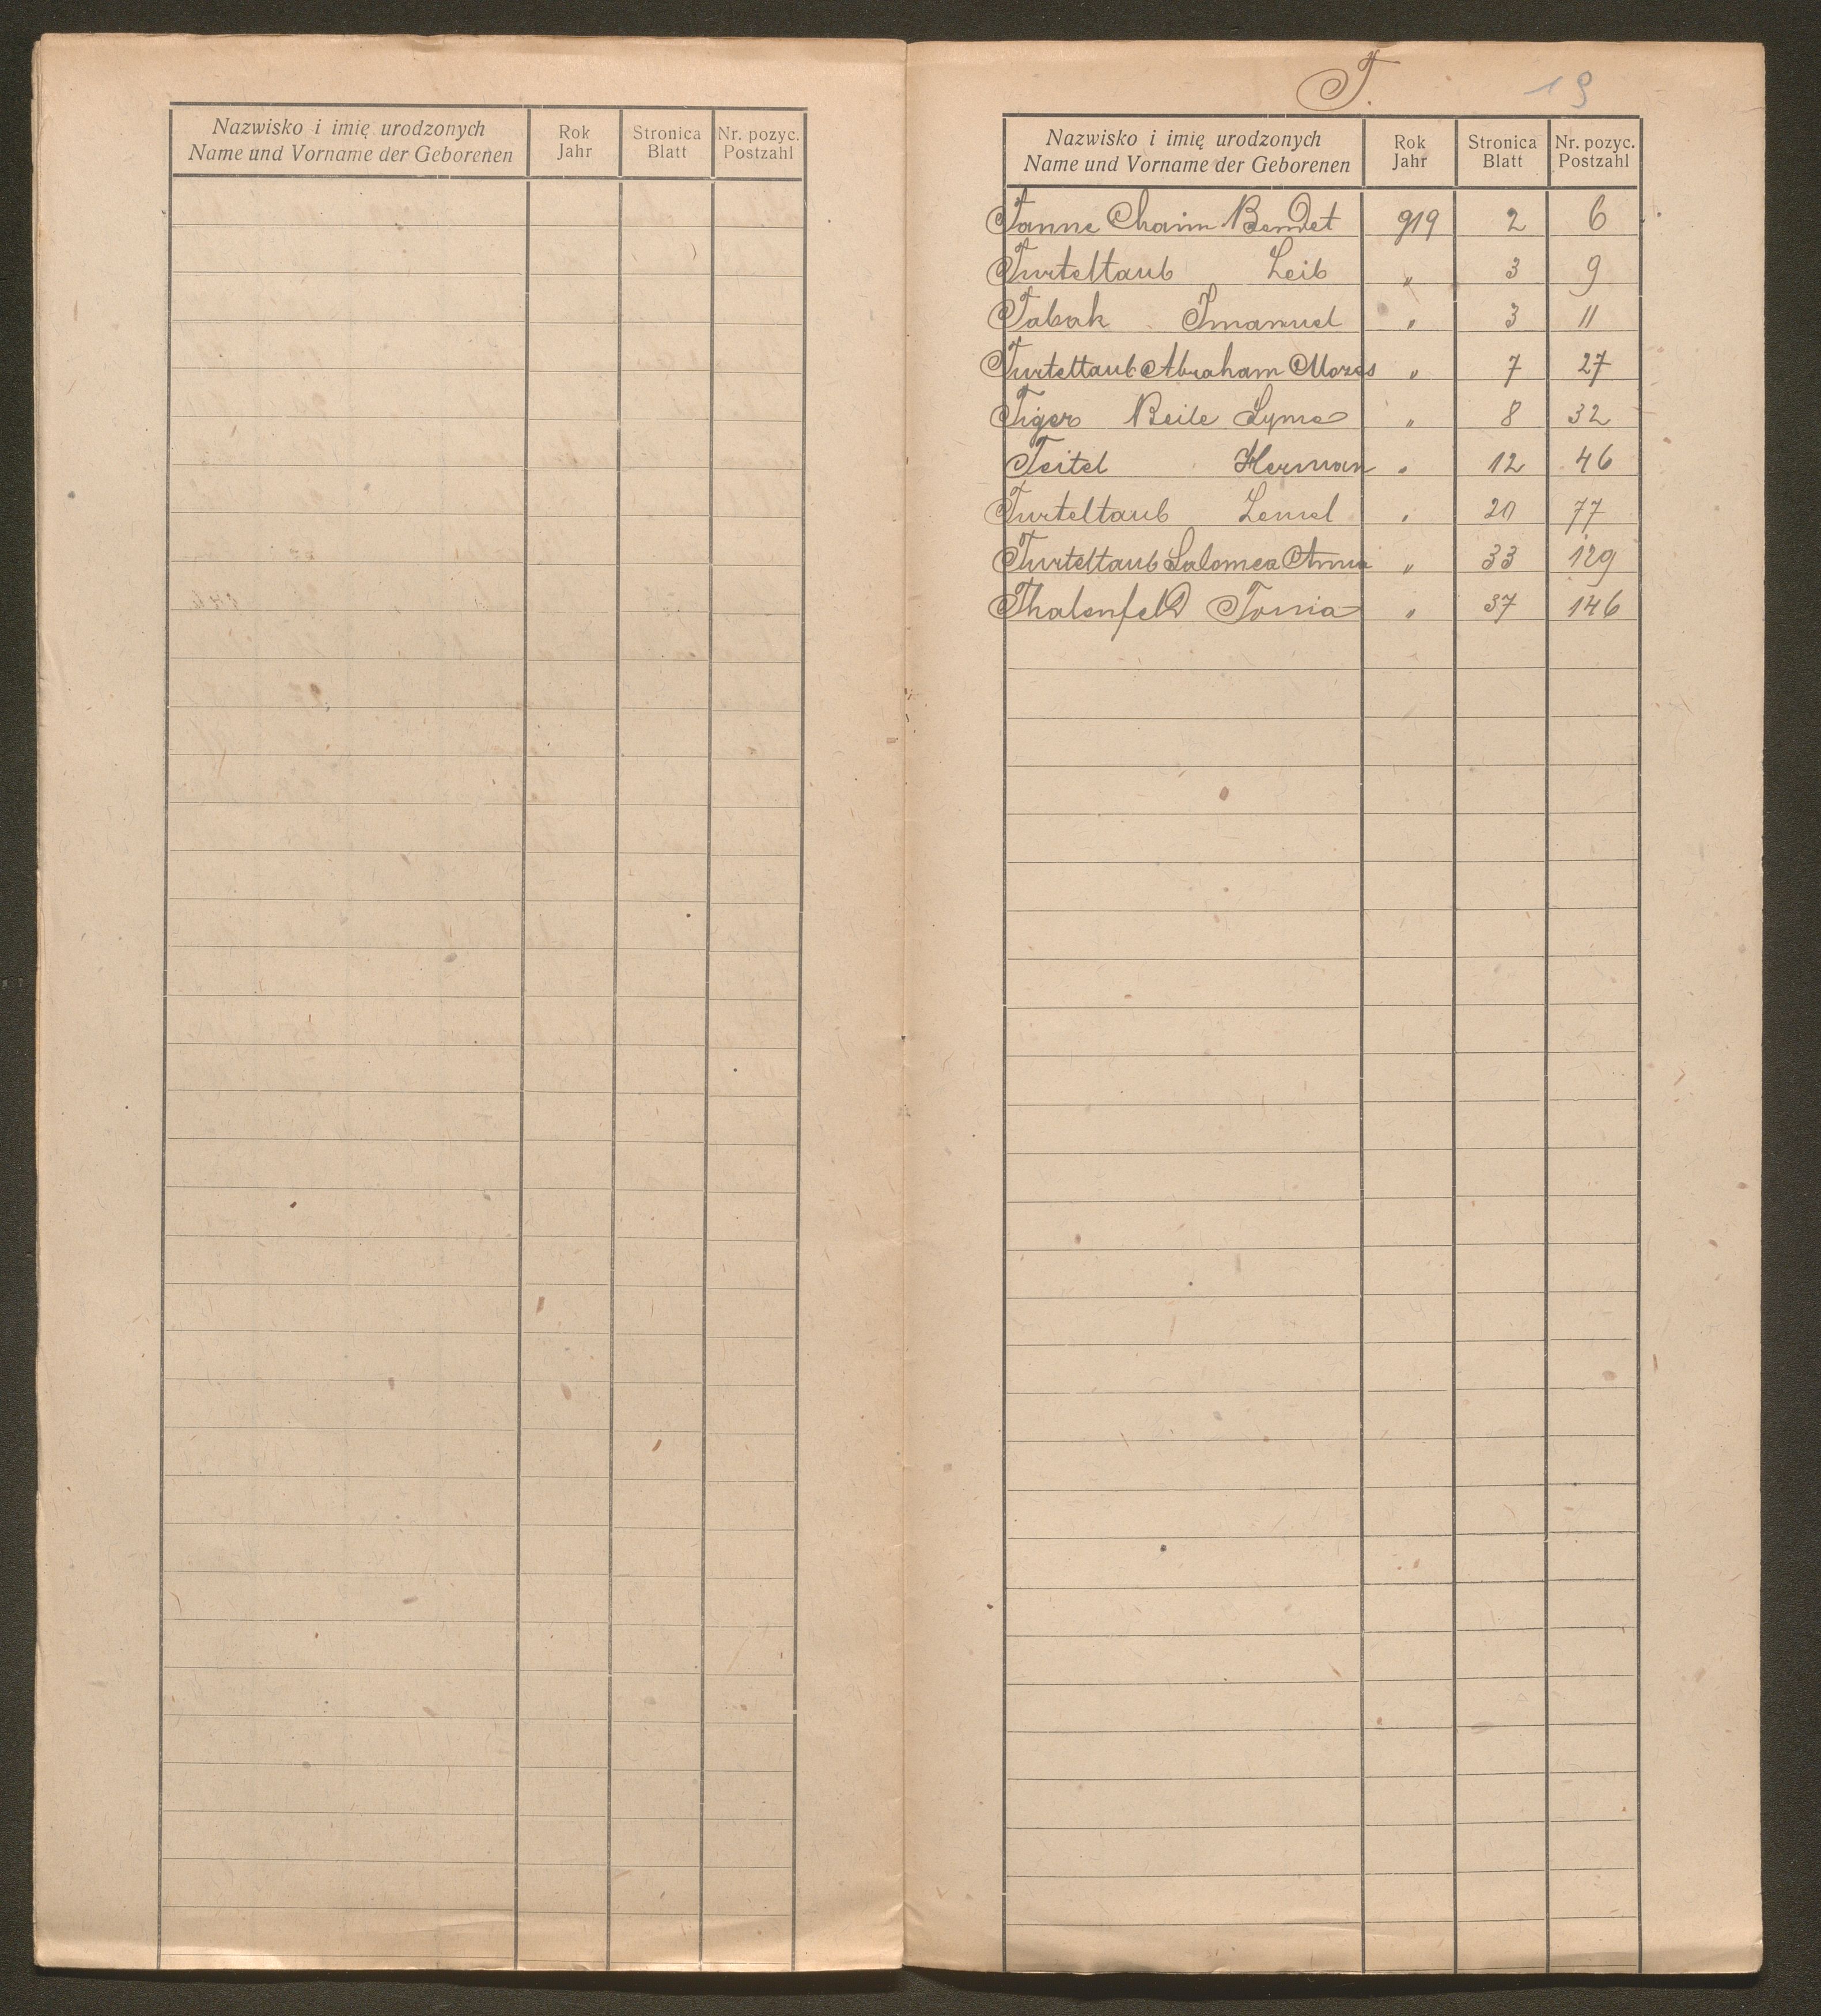 Nazwisko i imię urodzonych Rok Stronica Nr. pozyc.
Name und Vorname der Geborenen Jahr Blatt Postzahl
T. 19
Nazwisko i imię urodzonych Rok Stronica Nr. pozyc.
Name und Vorname der Geborenen Jahr Blatt Postzahl
Tanne Chaim Bendet 919 2 6
Turteltaub Leib " 3 9
Tabak Imanuel " 3 11
Turteltaub Abraham Mozes " 7 27
Tiger Beile Syma " 8 32
Teitel Herman " 12 46
Turteltaub Lemel " 20 77
Turteltaub Salomea Anna " 33 129
Thalenfeld Tonia " 37 146